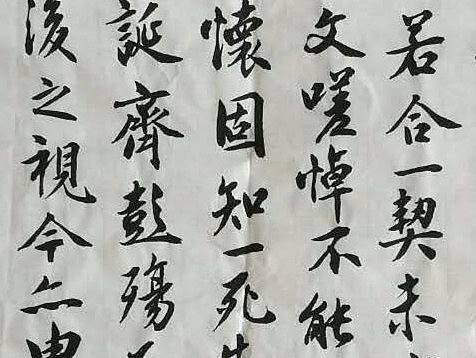 若合一契未
文嗟悼不能
懷固知一死生
誕齊彭殤為
後之視今亦由